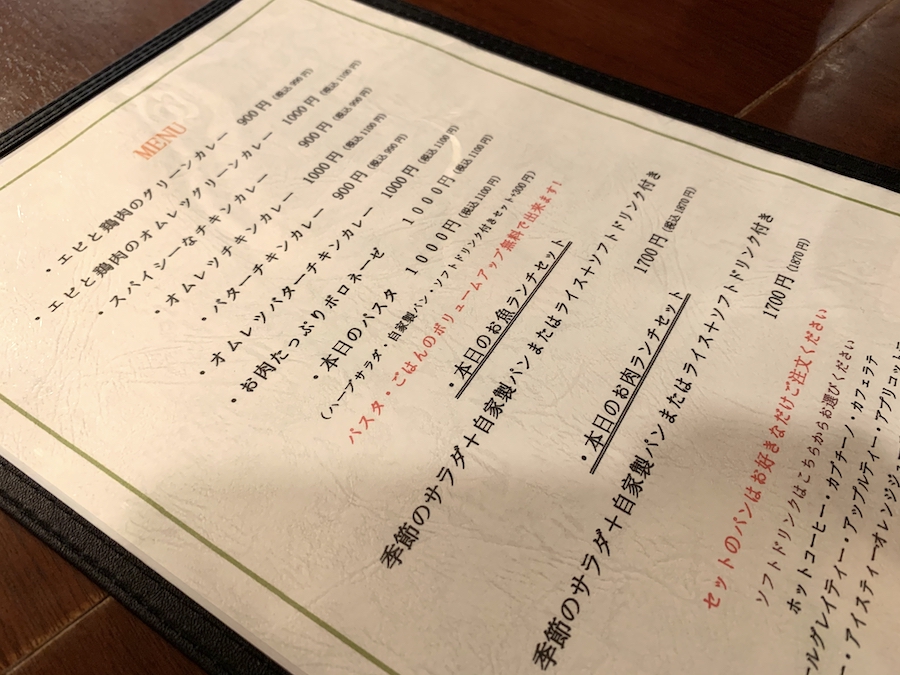 MENU
・エビと鶏肉のグリーンカレー 900円(税込990円)
・エビと鶏肉のオムレツグリーンカレー 1000円(税込1100円)
・スパイシーなチキンカレー 900円(税込990円)
・オムレツチキンカレー 1000円(税込1100円)
・バターチキンカレー 900円(税込990円)
・オムレツバターチキンカレー 1000円(税込1100円)
・お肉たっぷりボロネーゼ 1000円(税込1100円)
・本日のパスタ 1000円(税込1100円)
(ハーブサラダ・自家製パン・ソフトドリンク付きセット+300円)
パスタ・ごはんのボリュームアップ無料で出来ます!
・本日のお魚ランチセット
季節のサラダ+自家製パンまたはライス+ソフトドリンク付き
1700円(税込1870円)
・本日のお肉ランチセット
季節のサラダ+自家製パンまたはライス+ソフトドリンク付き
1700円(1870円)
セットのパンはお好きなだけご注文ください
ソフトドリンクはこちらからお選びください
ホットコーヒー・カプチーノ・カフェラテ
ールグレイティー・アップルティー・アプリコット
ー・アイスティーオレンジジュ